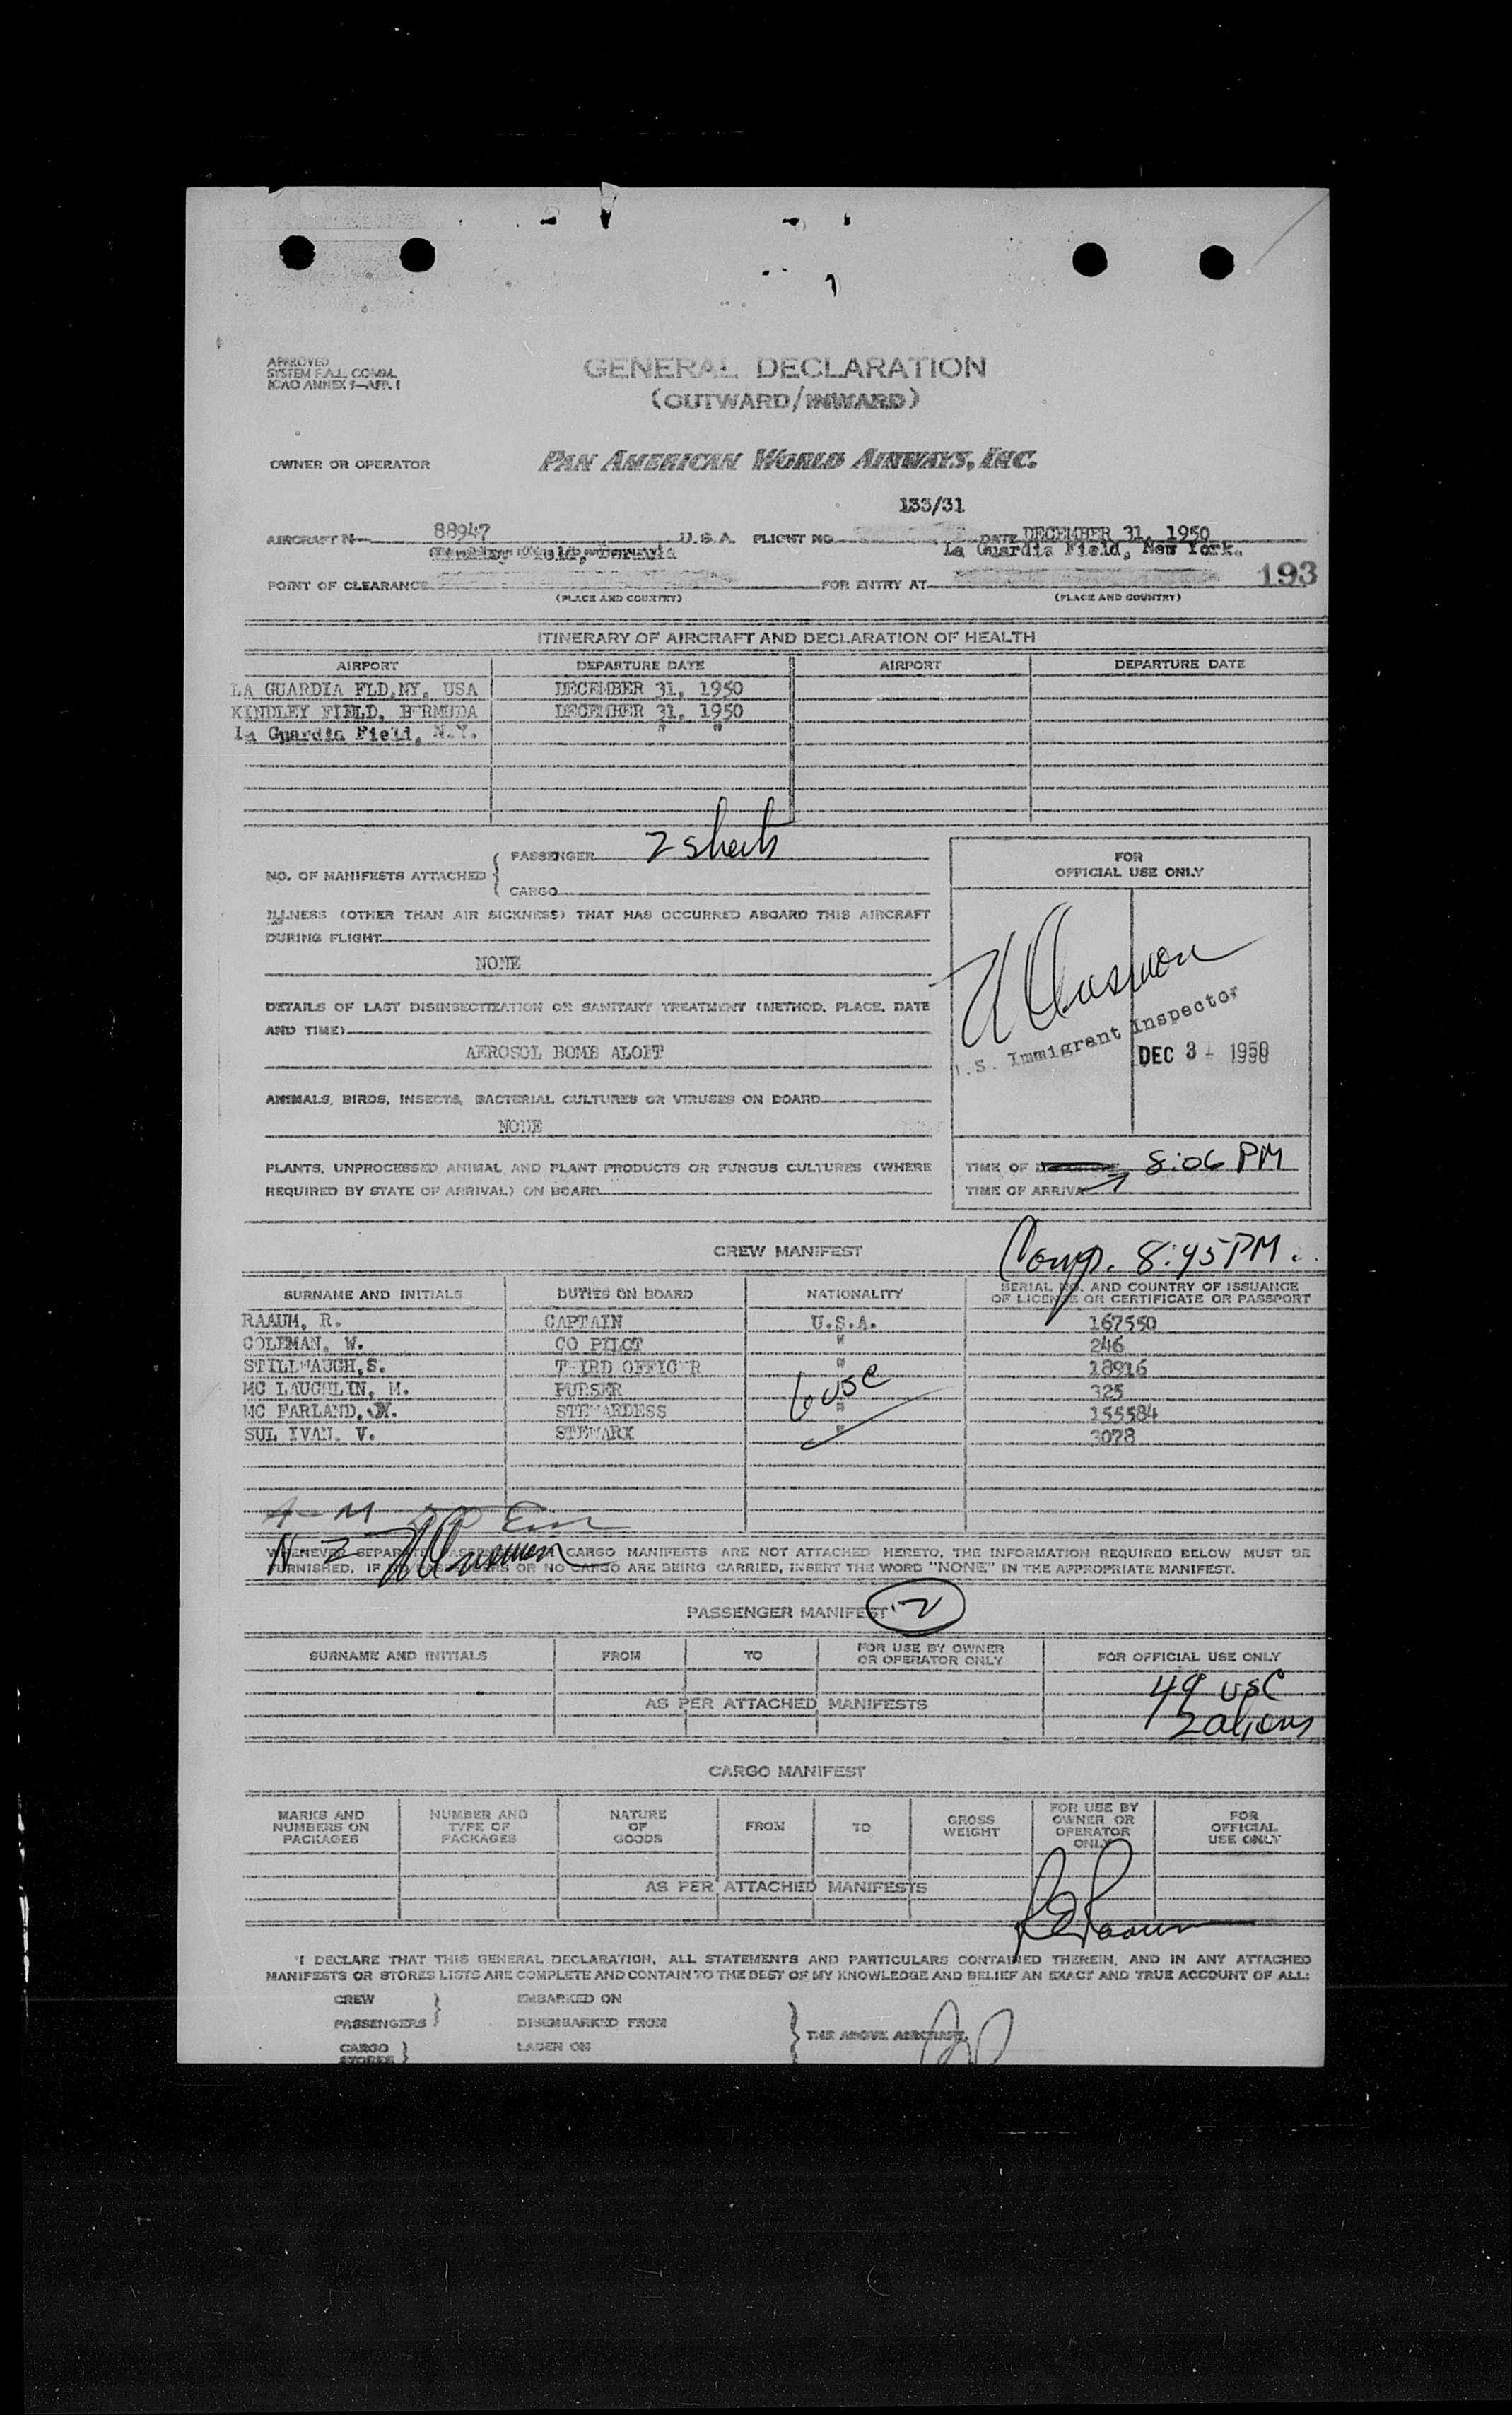 APPROVED
SYSTEM F.A.L. COMM.
ICAO ANNEX 9—APP. 1
GENERAL DECLARATION
(OUTWARD/INWARD)
OWNER OR OPERATOR PAN AMERICAN WORLD AIRWAYS, INC.
133/31
AIRCRAFT N— 88947 U.S.A. FLIGHT NO. DATE DECEMBER 31, 1950
La Guardia Field, New York.
POINT OF CLEARANCE FOR ENTRY AT 193
(PLACE AND COUNTRY) (PLACE AND COUNTRY)
ITINERARY OF AIRCRAFT AND DECLARATION OF HEALTH
AIRPORT DEPARTURE DATE AIRPORT DEPARTURE DATE
LA GUARDIA FLD,NY, USA DECEMBER 31, 1950
KINDLEY FIELD, BERMUDA DECEMBER 31, 1950
La Guardia Field, N.Y. " "
NO. OF MANIFESTS ATTACHED
PASSENGER 2 sheets
CARGO
ILLNESS (OTHER THAN AIR SICKNESS) THAT HAS OCCURRED ABOARD THIS AIRCRAFT
DURING FLIGHT
NONE
DETAILS OF LAST DISINSECTIZATION OR SANITARY TREATMENT (METHOD, PLACE, DATE
AND TIME)
AEROSOL BOMB ALOFT
ANIMALS, BIRDS, INSECTS, BACTERIAL CULTURES OR VIRUSES ON BOARD
NONE
PLANTS, UNPROCESSED ANIMAL AND PLANT PRODUCTS OR FUNGUS CULTURES (WHERE
REQUIRED BY STATE OF ARRIVAL) ON BOARD
FOR
OFFICIAL USE ONLY
U.S. Immigrant Inspector
DEC 31 1950
TIME OF 8:06 PM
TIME OF ARRIVAL
Comp. 8:45 PM.
CREW MANIFEST
SURNAME AND INITIALS DUTIES ON BOARD NATIONALITY SERIAL NO. AND COUNTRY OF ISSUANCE
OF LICENSE OR CERTIFICATE OR PASSPORT
RAAUM, R. CAPTAIN U.S.A. 167550
COLEMAN, W. CO PILOT " 246
STILLWAUGH,S. THIRD OFFICER " 18916
MC LAUGHLIN, M. PURSER 325
MC FARLAND, M. STEWARDESS " 155584
SULLIVAN, V. STEWARX " 3078
6 USC
WHENEVER SEPARATE PASSENGER OR CARGO MANIFESTS ARE NOT ATTACHED HERETO, THE INFORMATION REQUIRED BELOW MUST BE
FURNISHED. IF NO PASSENGERS OR NO CARGO ARE BEING CARRIED, INSERT THE WORD "NONE" IN THE APPROPRIATE MANIFEST.
PASSENGER MANIFEST 2
SURNAME AND INITIALS FROM TO FOR USE BY OWNER
OR OPERATOR ONLY FOR OFFICIAL USE ONLY
49 USC
AS PER ATTACHED MANIFESTS
2 aliens
CARGO MANIFEST
MARKS AND
NUMBERS ON
PACKAGES
NUMBER AND
TYPE OF
PACKAGES
NATURE
OF
GOODS
FROM TO
GROSS
WEIGHT
FOR USE BY
OWNER OR
OPERATOR
ONLY
FOR
OFFICIAL
USE ONLY
AS PER ATTACHED MANIFESTS
"I DECLARE THAT THIS GENERAL DECLARATION, ALL STATEMENTS AND PARTICULARS CONTAINED THEREIN, AND IN ANY ATTACHED
MANIFESTS OR STORES LISTS ARE COMPLETE AND CONTAIN TO THE BEST OF MY KNOWLEDGE AND BELIEF AN EXACT AND TRUE ACCOUNT OF ALL:
CREW EMBARKED ON
PASSENGERS DISEMBARKED FROM
THE ABOVE AIRCRAFT.
CARGO LADEN ON
STORES